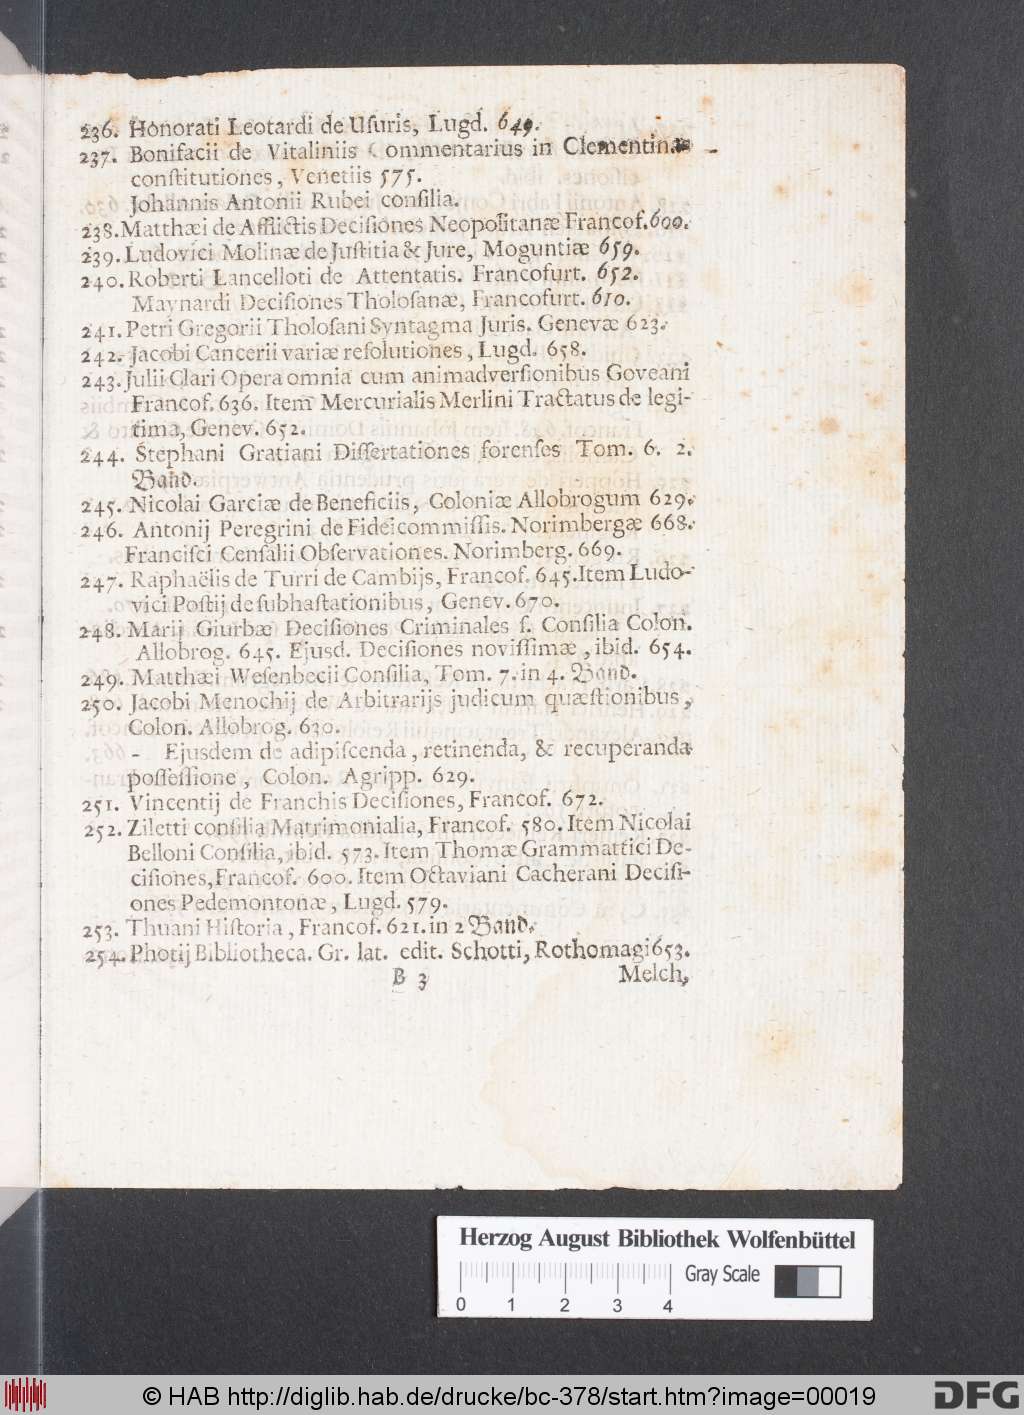 236. Honorati Leotardi de Uſuris, Lugd. 649.
237. Bonifacii de Vitaliniis Commentarius in Clementinas
conſtitutiones, Venetiis 575.
Johannis Antonii Rubei conſilia.
238. Matthæi de Afflictis Deciſiones Neopolitanæ Francof. 600.
239. Ludovici Molinæ de Juſtitia & Jure, Moguntiæ 659.
240. Roberti Lancelloti de Attentatis. Francofurt. 652.
Maynardi Deciſiones Tholoſanæ, Francofurt. 610.
241. Petri Gregorii Tholoſani Syntagma Juris. Genevæ 623.
242. Jacobi Cancerii variæ reſolutiones, Lugd. 658.
243. Julii Clari Opera omnia cum animadverſionibus Goveani
Francof. 636. Item Mercurialis Merlini Tractatus de legi-
tima, Genev. 652.
244. Stephani Gratiani Diſſertationes forenſes Tom. 6. 2.
Band.
245. Nicolai Garciæ de Beneficiis, Coloniæ Allobrogum 629.
246. Antonij Peregrini de Fideicommiſſis. Norimbergæ 668.
Franciſci Cenſalii Obſervationes. Norimberg. 669.
247. Raphaëlis de Turri de Cambijs, Francof. 645. Item Ludo-
vici Poſtij de ſubhaſtationibus, Genev. 670.
248. Marij Giurbæ Deciſiones Criminales ſ. Conſilia Colon.
Allobrog. 645. Ejusd. Deciſiones noviſſimæ, ibid. 654.
249. Matthæi Weſenbecii Conſilia, Tom. 7. in 4. Band.
250. Jacobi Menochij de Arbitrarijs judicum quæſtionibus,
Colon. Allobrog. 630.
- Ejusdem de adipiſcenda, retinenda, & recuperanda
poſſeſſione, Colon. Agripp. 629.
251. Vincentij de Franchis Deciſiones, Francof. 672.
252. Ziletti conſilia Matrimonialia, Francof. 580. Item Nicolai
Belloni Conſilia, ibid. 573. Item Thomæ Grammattici De-
ciſiones, Francof. 600. Item Octaviani Cacherani Deciſi-
ones Pedemontonæ, Lugd. 579.
253. Thuani Hiſtoria, Francof. 621. in 2 Band.
254. Photij Bibliotheca. Gr. lat. edit. Schotti, Rothomagi 653.
B 3 Melch,
Herzog August Bibliothek Wolfenbüttel
Gray Scale
0 1 2 3 4
© HAB http://diglib.hab.de/drucke/bc-378/start.htm?image=00019
DFG